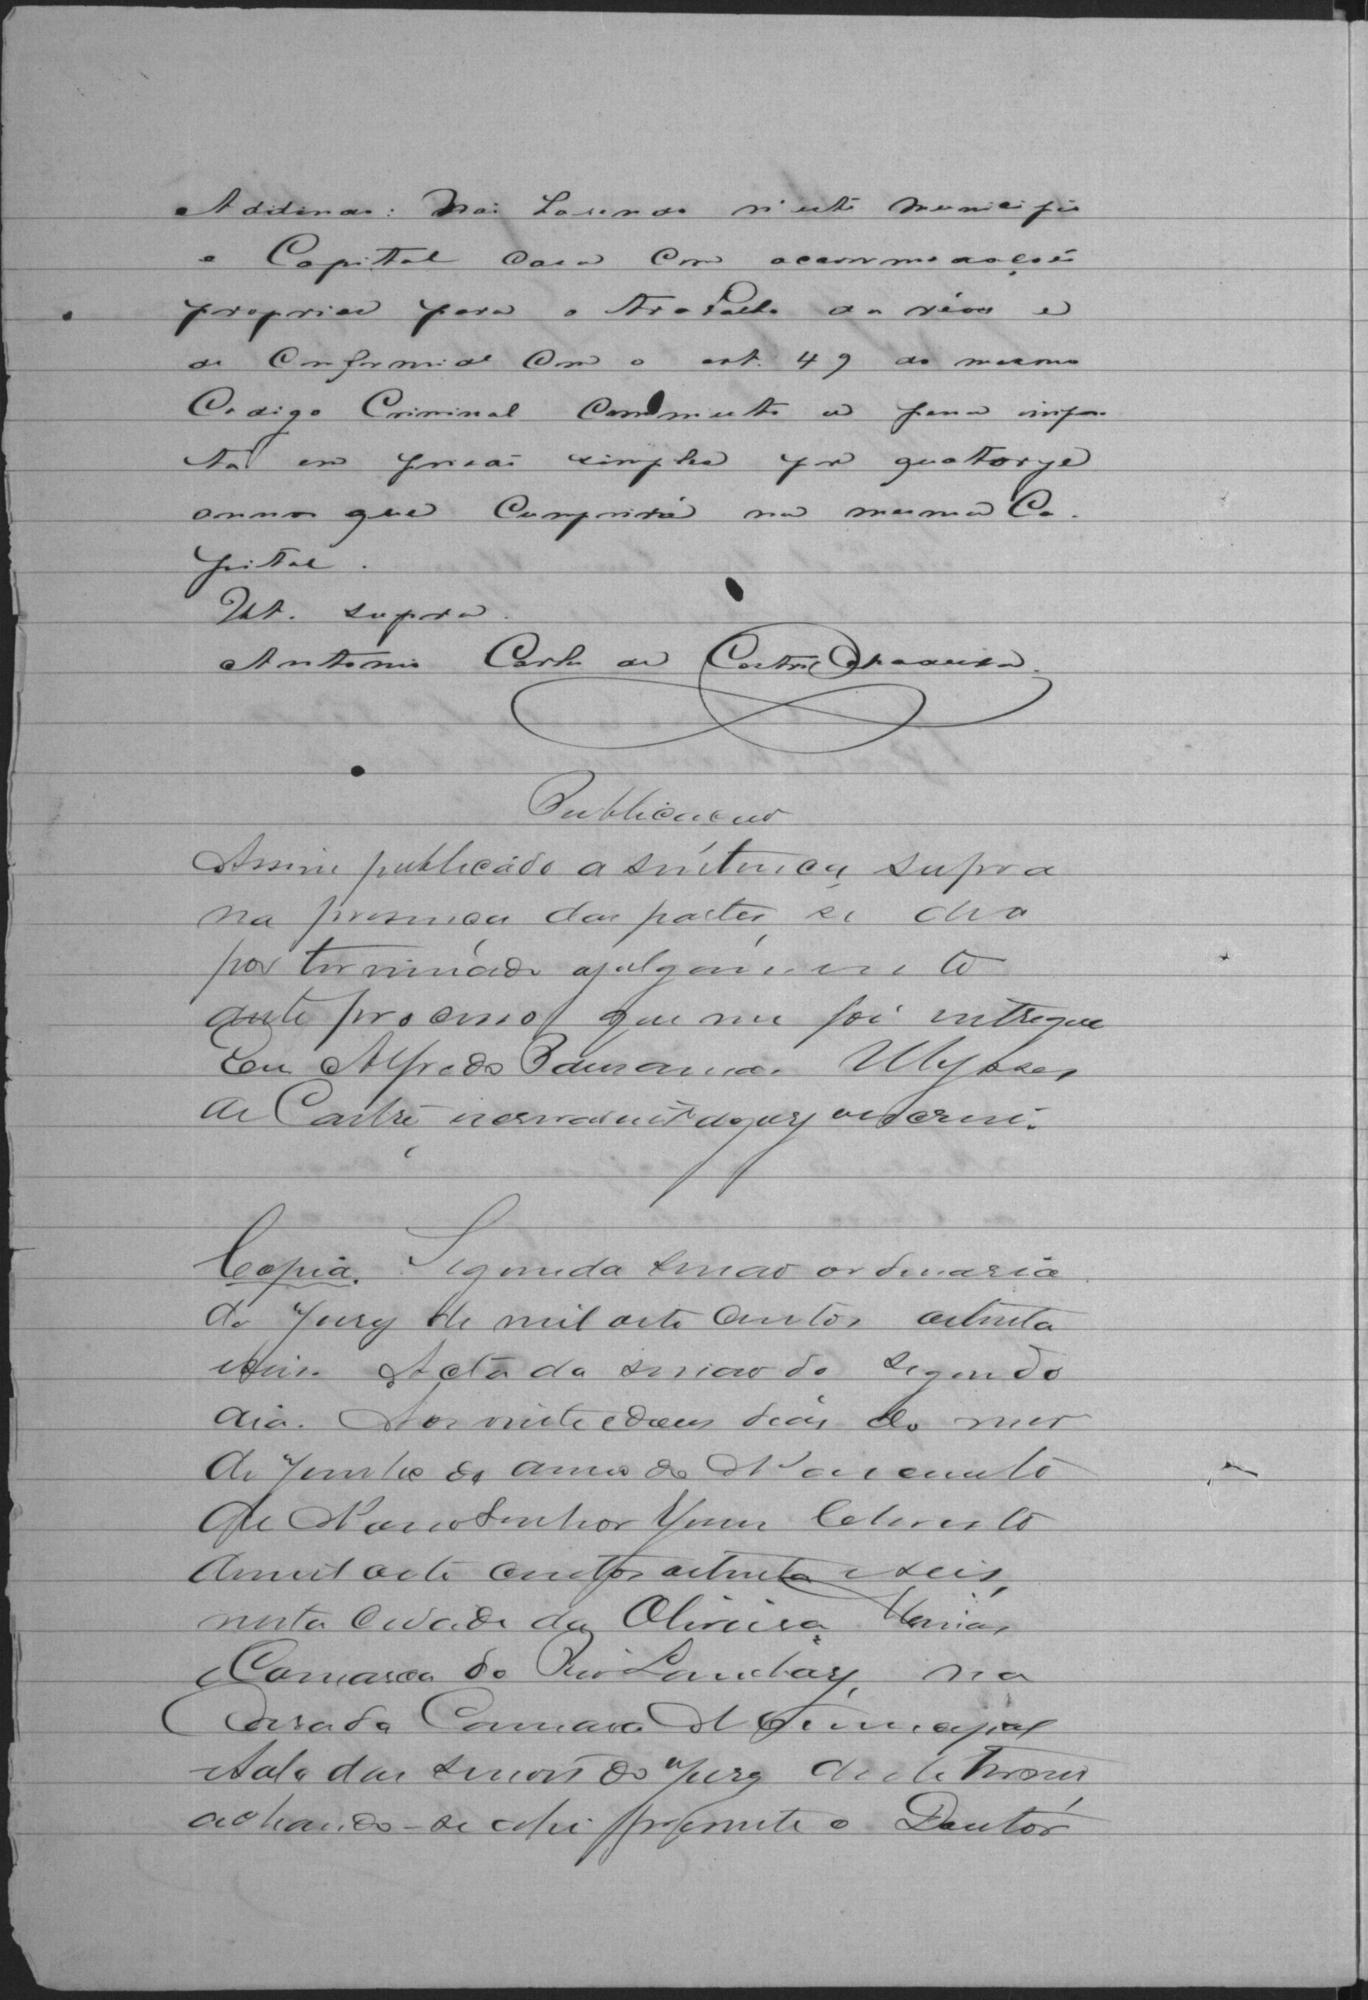 Additando: Não havendo n'este Municipio
e Capital casa com accommodações
proprias para o trabalho dos réos e
de conformid.e com o art. 49 do mesmo
Codigo Criminal commuto a pena impos
ta em prisão simples por quatorze
annos que cumprirá na mesma Ca
pital.
Ut. supra.
Antonio Carlos de Castro Madeira.
Publicação
Assim publicado a sentença supra
na presença das partes, se deo
por terminado o julgamento
deste processo que me foi entregue
Eu Alfredo Pausanias Ulysses
de Castro escrivão do jury o escrevi.
Copia. Segunda sessão ordinaria
do Jury de mil oito centos oitenta
e seis. Acta da sessão do segundo
dia. Aos vinte e dous dias do mez
de Junho do anno do Nascimento
de Nosso Senhor Jesus Christo
de mil oito centos oitenta e seis,
nesta cidade da Oliveira
Comarca do Rio Lambary, na
Casa da Camara Municipal
e sala das sessões do Jury deste termo
achando-se ahi presente o Doutór